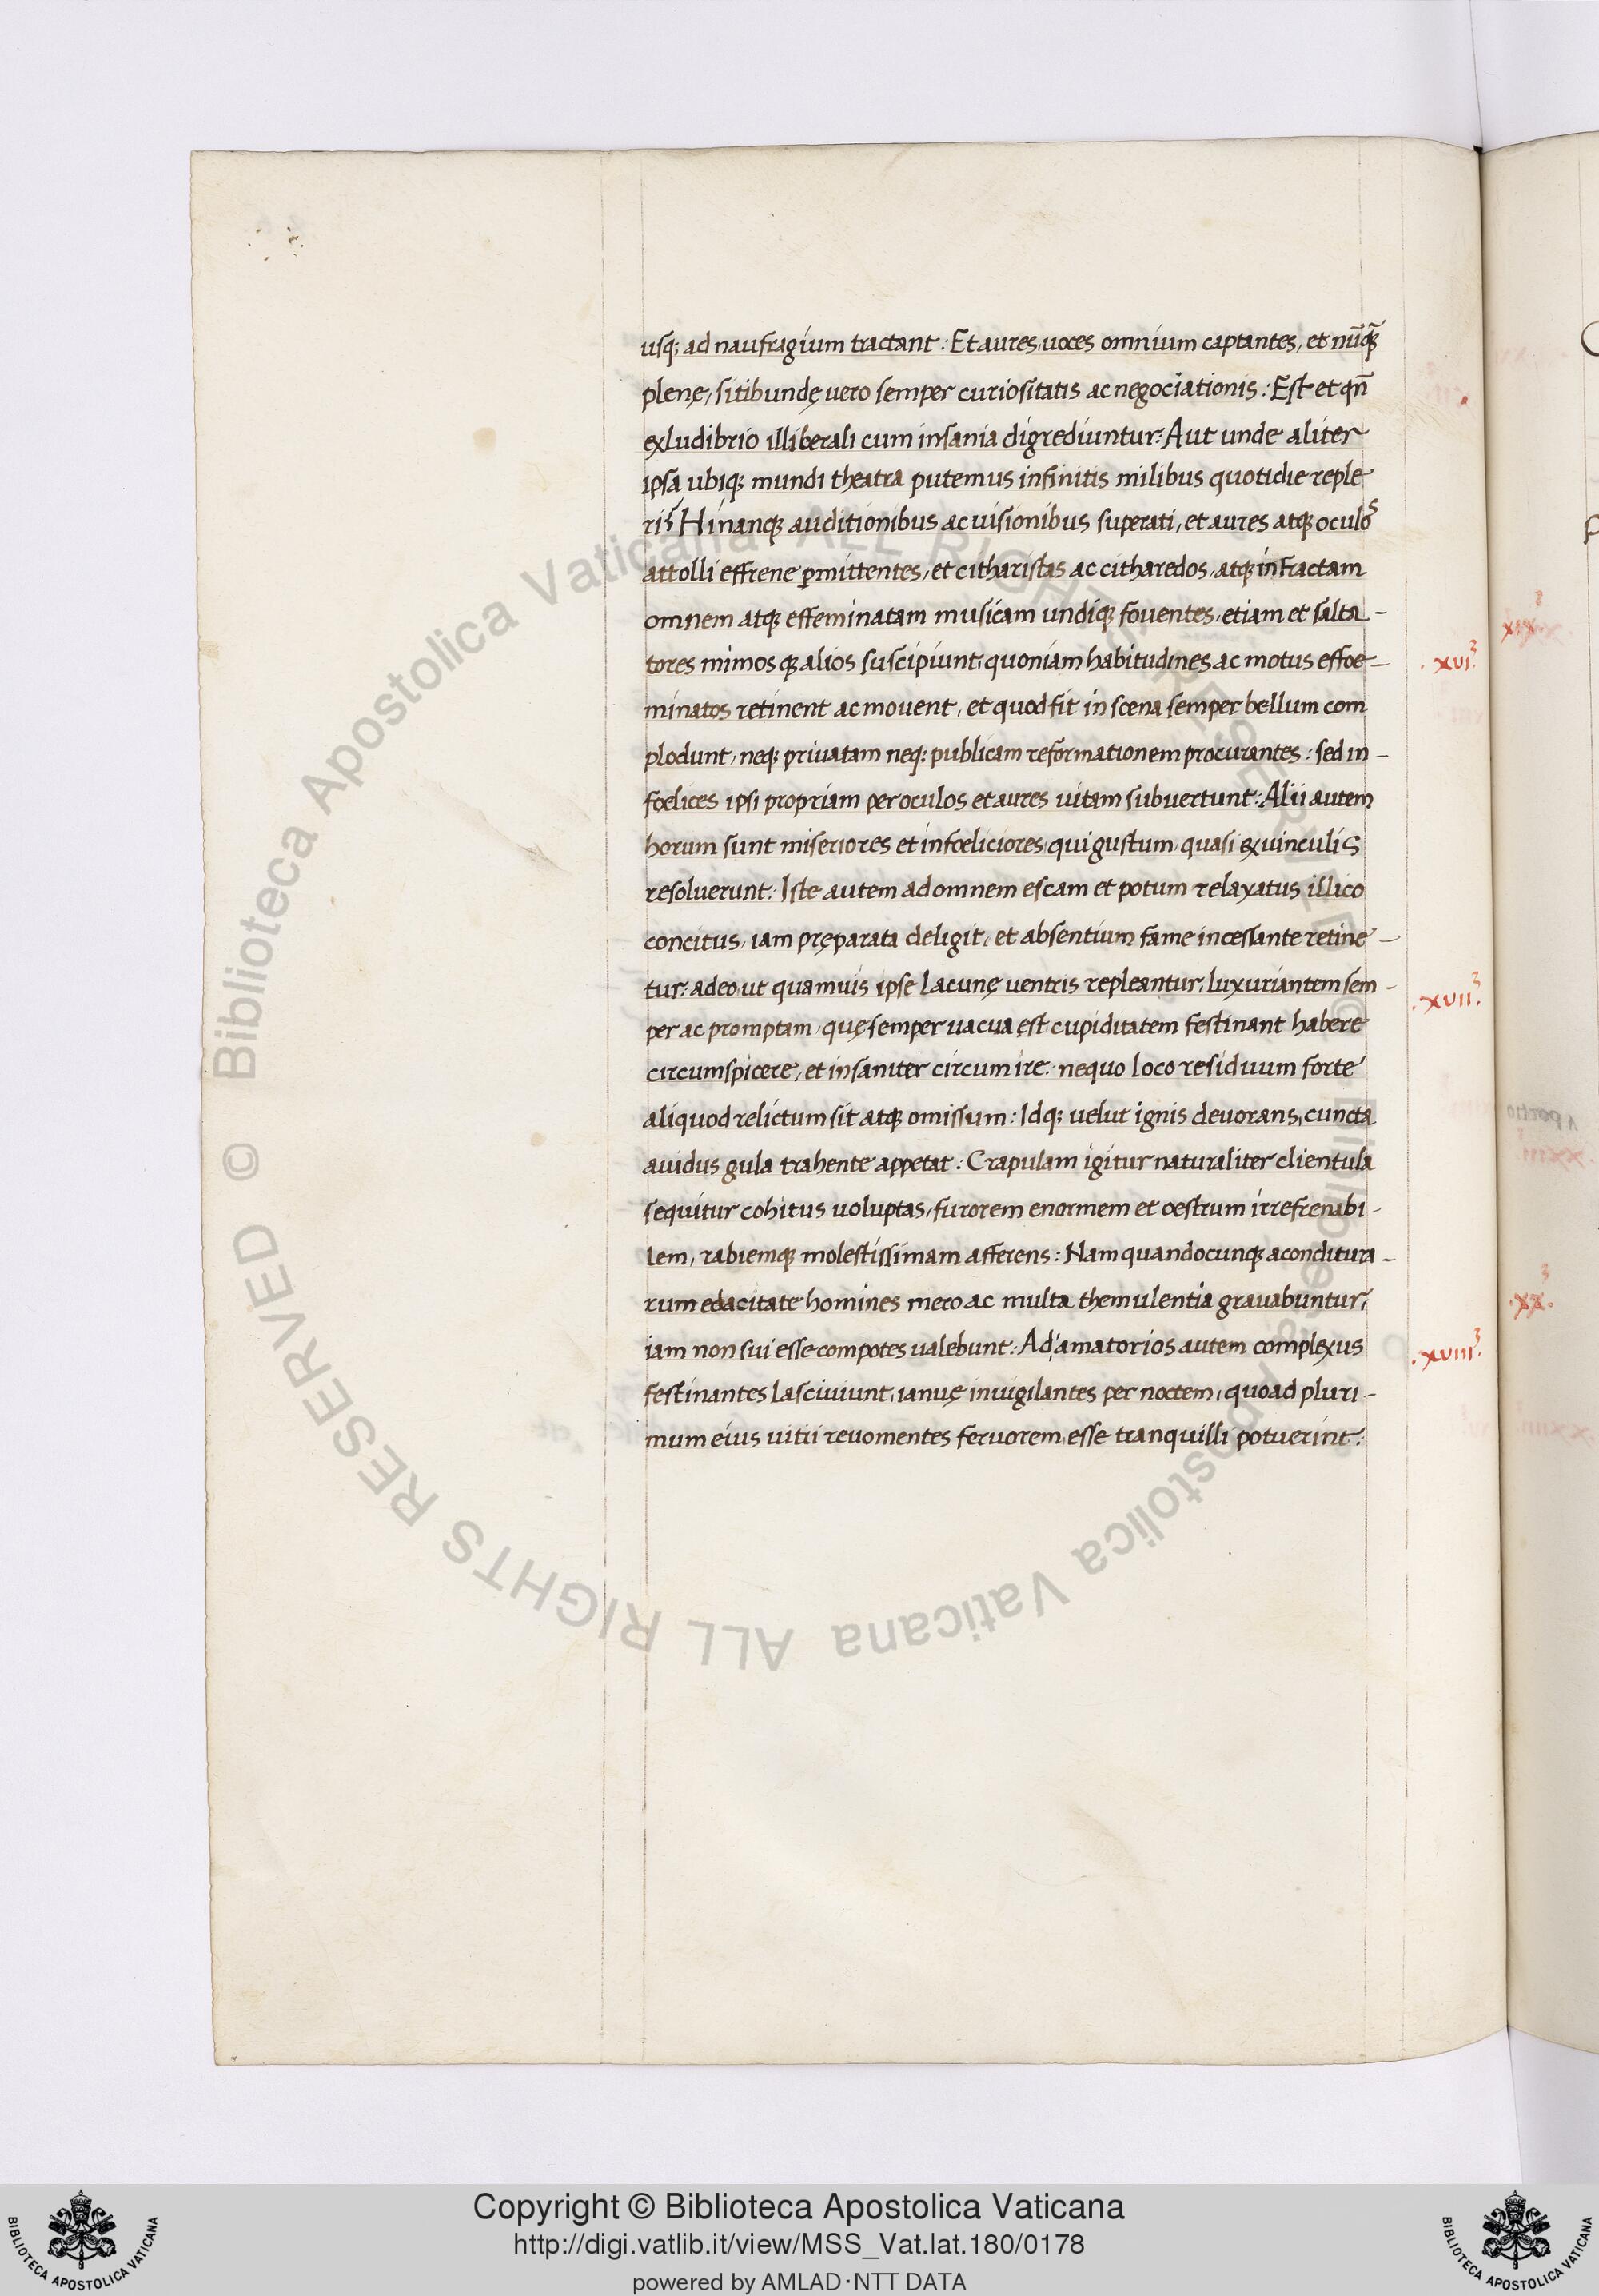 usq; ad naufragium tractant: Et aures, uoces omnium captantes, et nūq̄
plenę, sitibundę vero semper curiositatis ac negociationis: Est et qn̄
ex ludibrio illiberali cum insania digrediuntur: Aut unde aliter
ipsa ubiq; mundi theatra putemus infinitis milibus quotidie reple
ri? Hinanq; auditionibus ac uisionibus superati, et aures atq; oculos
attolli effrene ꝑmittentes, et citharistas ac citharedos, atq; infractam
omnem atq; effeminatam musicam undiq; fouentes, etiam et salta-
tores mimosq; alios suscipiunt, quoniam habitudines ac motus effoe-
minatos retinent ac mouent, et quod fit in scena semper bellum com
plodunt, neq; priuatam neq; publicam reformationem procurantes: sed in-
foelices ipsi propriam per oculos et aures uitam subuertunt: Alii autem
horum sunt miseriores et infoeliciores, qui gustum, quasi ex uinculis
resoluerunt: Iste autem ad omnem escam et potum relaxatus illico
concitus, iam pręparata deligit, et absentium fame incessante retine-
tur: adeo, ut quamuis ipse lacunę uentris repleantur, luxuriantem sem-
per ac promptam, quę semper uacua ęst cupiditatem festinant habere
circumspicere, et insaniter circumire: nequo loco residuum forte
aliquod relictum sit atq; omissum: Idq; uelut ignis deuorans, cuncta
auidus gula trahente appetat: Crapulam igitur naturaliter clientula
sequitur cohitus uoluptas, furorem enormem et oestrum irrefrenabi-
lem, rabiemq; molestissimam afferens: Nam quandocunq; a conditura-
rum edacitate homines mero ac multa themulentia grauabuntur,
iam non sui esse compotes ualebunt: Ad amatorios autem complexus
festinantes lasciuiunt, ianuę inuigilantes per noctem, quoad pluri-
mum eius uitii reuomentes feruorem, esse tranquilli potuerint:
.xvi.³
.xvii.³
.xviii.³
xix.³
.xx.³
© Biblioteca Apostolica Vaticana ALL RIGHTS RESERVED © Biblioteca Apostolica Vaticana ALL RIGHTS RESERVED
Copyright © Biblioteca Apostolica Vaticana
http://digi.vatlib.it/view/MSS_Vat.lat.180/0178
powered by AMLAD·NTT DATA
BIBLIOTECA APOSTOLICA VATICANA
BIBLIOTECA APOSTOLICA VATICANA